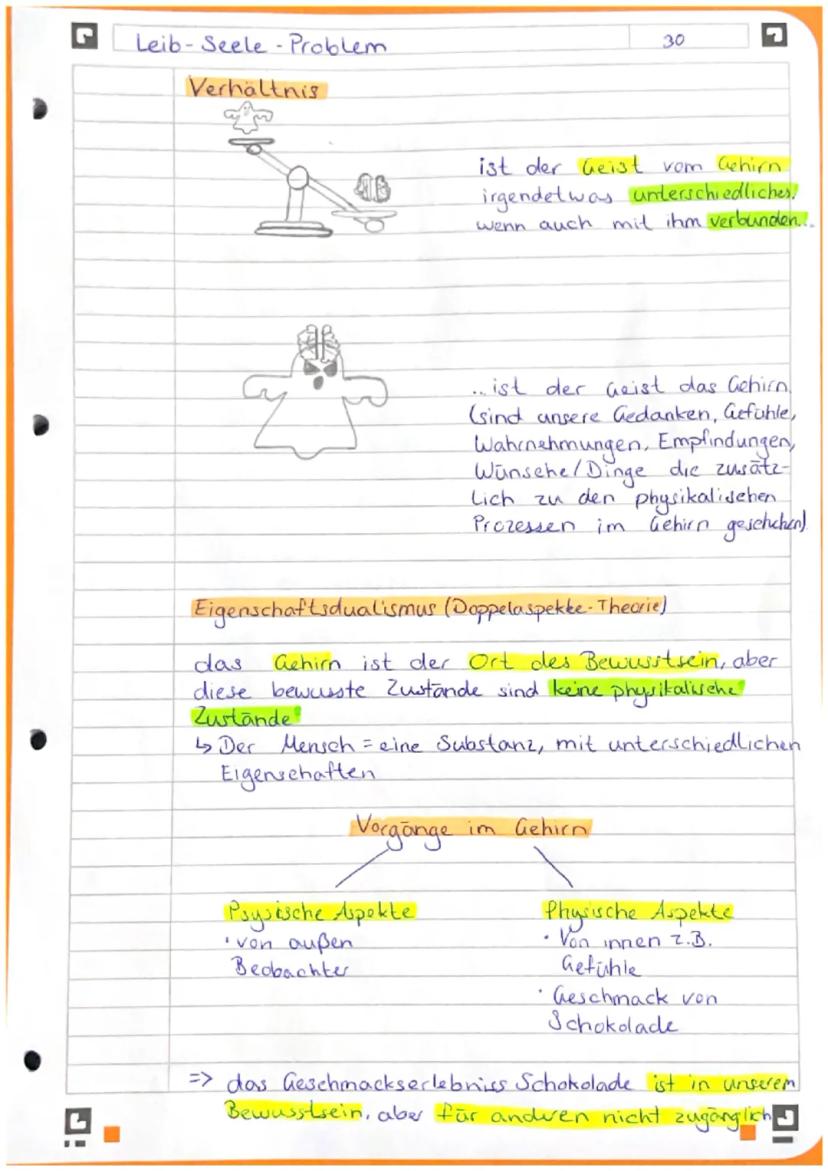 Leib-Seele-Problem
30
Verhältnis
ist der Geist vom Gehirn
irgendetwas unterschiedliches,
wenn auch mit ihm verbunden...
...ist der Geist das Gehirn
(sind unsere Gedanken, Gefühle,
Wahrnehmungen, Empfindungen,
Wünsche/Dinge die zusätz-
lich zu den physikalischen
Prozessen im Gehirn geschehen)
Eigenschaftsdualismus (Doppelaspekte-Theorie)
das Gehirn ist der Ort des Bewusstsein, aber
diese bewusste Zustände sind "keine physikalische"
Zustände"
↳ Der Mensch = eine Substanz, mit unterschiedlichen
Eigenschaften
Vorgänge im Gehirn
Psysische Aspekte
• von außen
Beobachter
Physische Aspekte
• Von innen z.B.
Gefühle
• Geschmack von
Schokolade
=> das Geschmackserlebniss Schokolade ist in unserem
Bewusstsein, aber für anderen nicht zugänglich